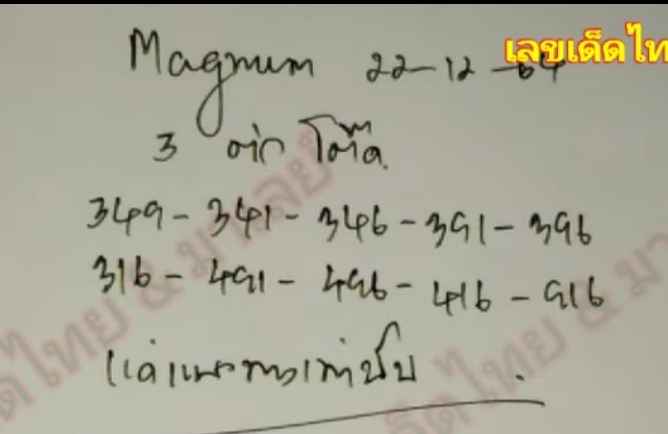 Magnum 22-12-64
เลขเด็ดไท
3 ตัว โต๊ด
349-341-346-391-396
316-491-496-416-916
แค่แนวทางเท่านั้น